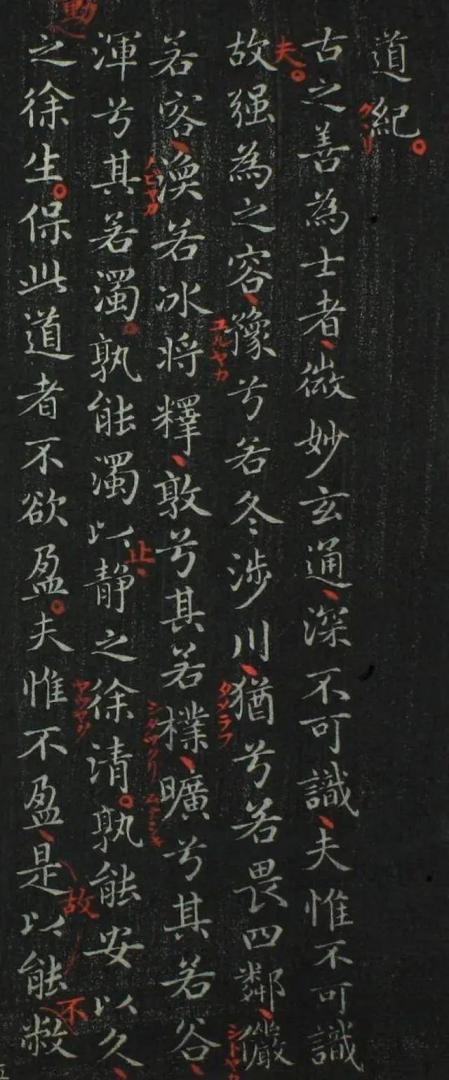 道紀。
古之善為士者、微妙玄通、深不可識、夫惟不可識
夫。
故强為之容、豫兮若冬涉川、猶兮若畏四鄰、儼
ユルヤカ
タメラフ
シトヤカ
若容、渙若冰將釋、敦兮其若樸、曠兮其若谷、
ノビヤカ
渾兮其若濁。孰能濁以靜之徐清。孰能安以久、
止、
動
之徐生。保此道者不欲盈。夫惟不盈、是以能敝
故
不